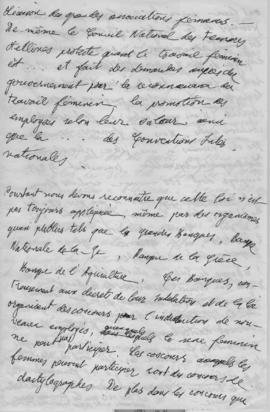 réunion des grandes associations féminines. —
De même le Conseil National des Femmes
Hellènes proteste quand le travail féminin
est et fait des demandes auprès du
gouvernement pour la reconnaissance du
travail féminin, la promotion des
employées selon leur valeur ainsi
que la ... des Conventions Inter
nationales.
Pourtant nous devons reconnaître que cette loi n'est
pas toujours appliquée, même par des organismes
quasi publics tels que les grandes Banques, Banque
Nationale de la Grèce, Banque de la Grèce,
Banque de l'Agriculture. Ces Banques, con-
trairement aux décrets de leur fondation et de la loi
organisent des concours pour l'introduction de nou-
veaux employés, le sexe féminin
ne peut participer. Les concours auxquels les
femmes peuvent participer sont du concours de
dactylographes. De plus dans les concours que